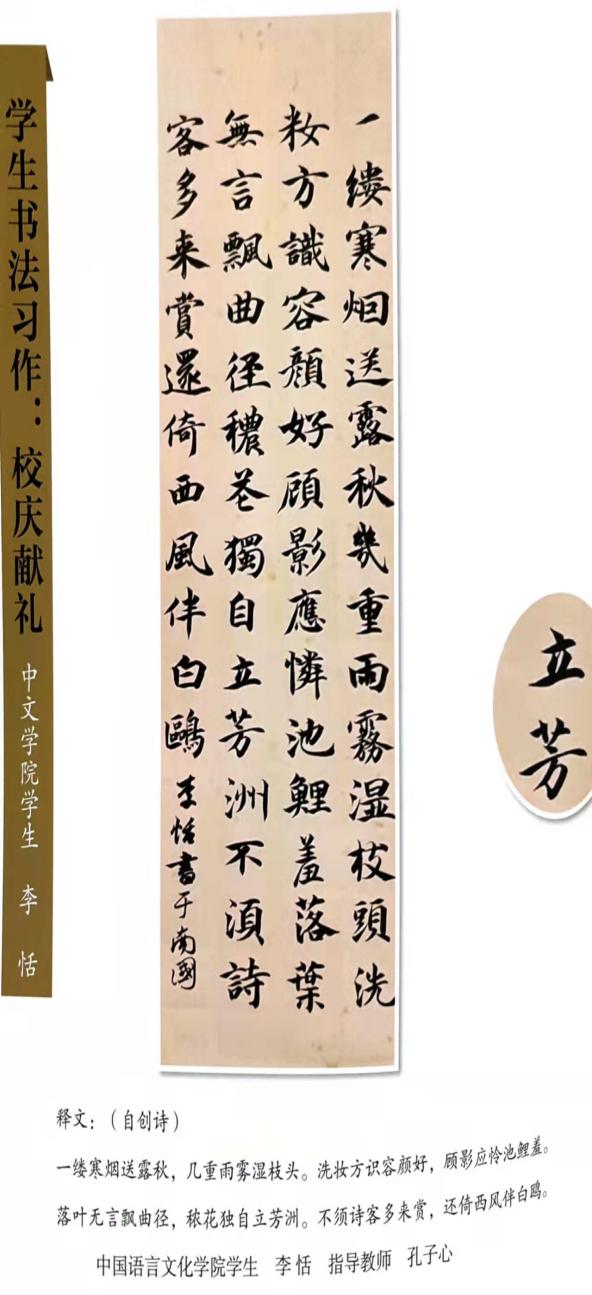 学生书法习作：校庆献礼 中文学院学生 李恬
一缕寒烟送露秋幾重雨霧湿枝頭洗
妆方識容顔好顧影應憐池鯉羞落葉
無言飄曲径穠花獨自立芳洲不須詩
客多来賞還倚西風伴白鷗 李恬書于南國
立芳
释文：（自创诗）
一缕寒烟送露秋，几重雨雾湿枝头。洗妆方识容颜好，顾影应怜池鲤羞。
落叶无言飘曲径，秾花独自立芳洲。不须诗客多来赏，还倚西风伴白鸥。
中国语言文化学院学生 李恬 指导教师 孔子心